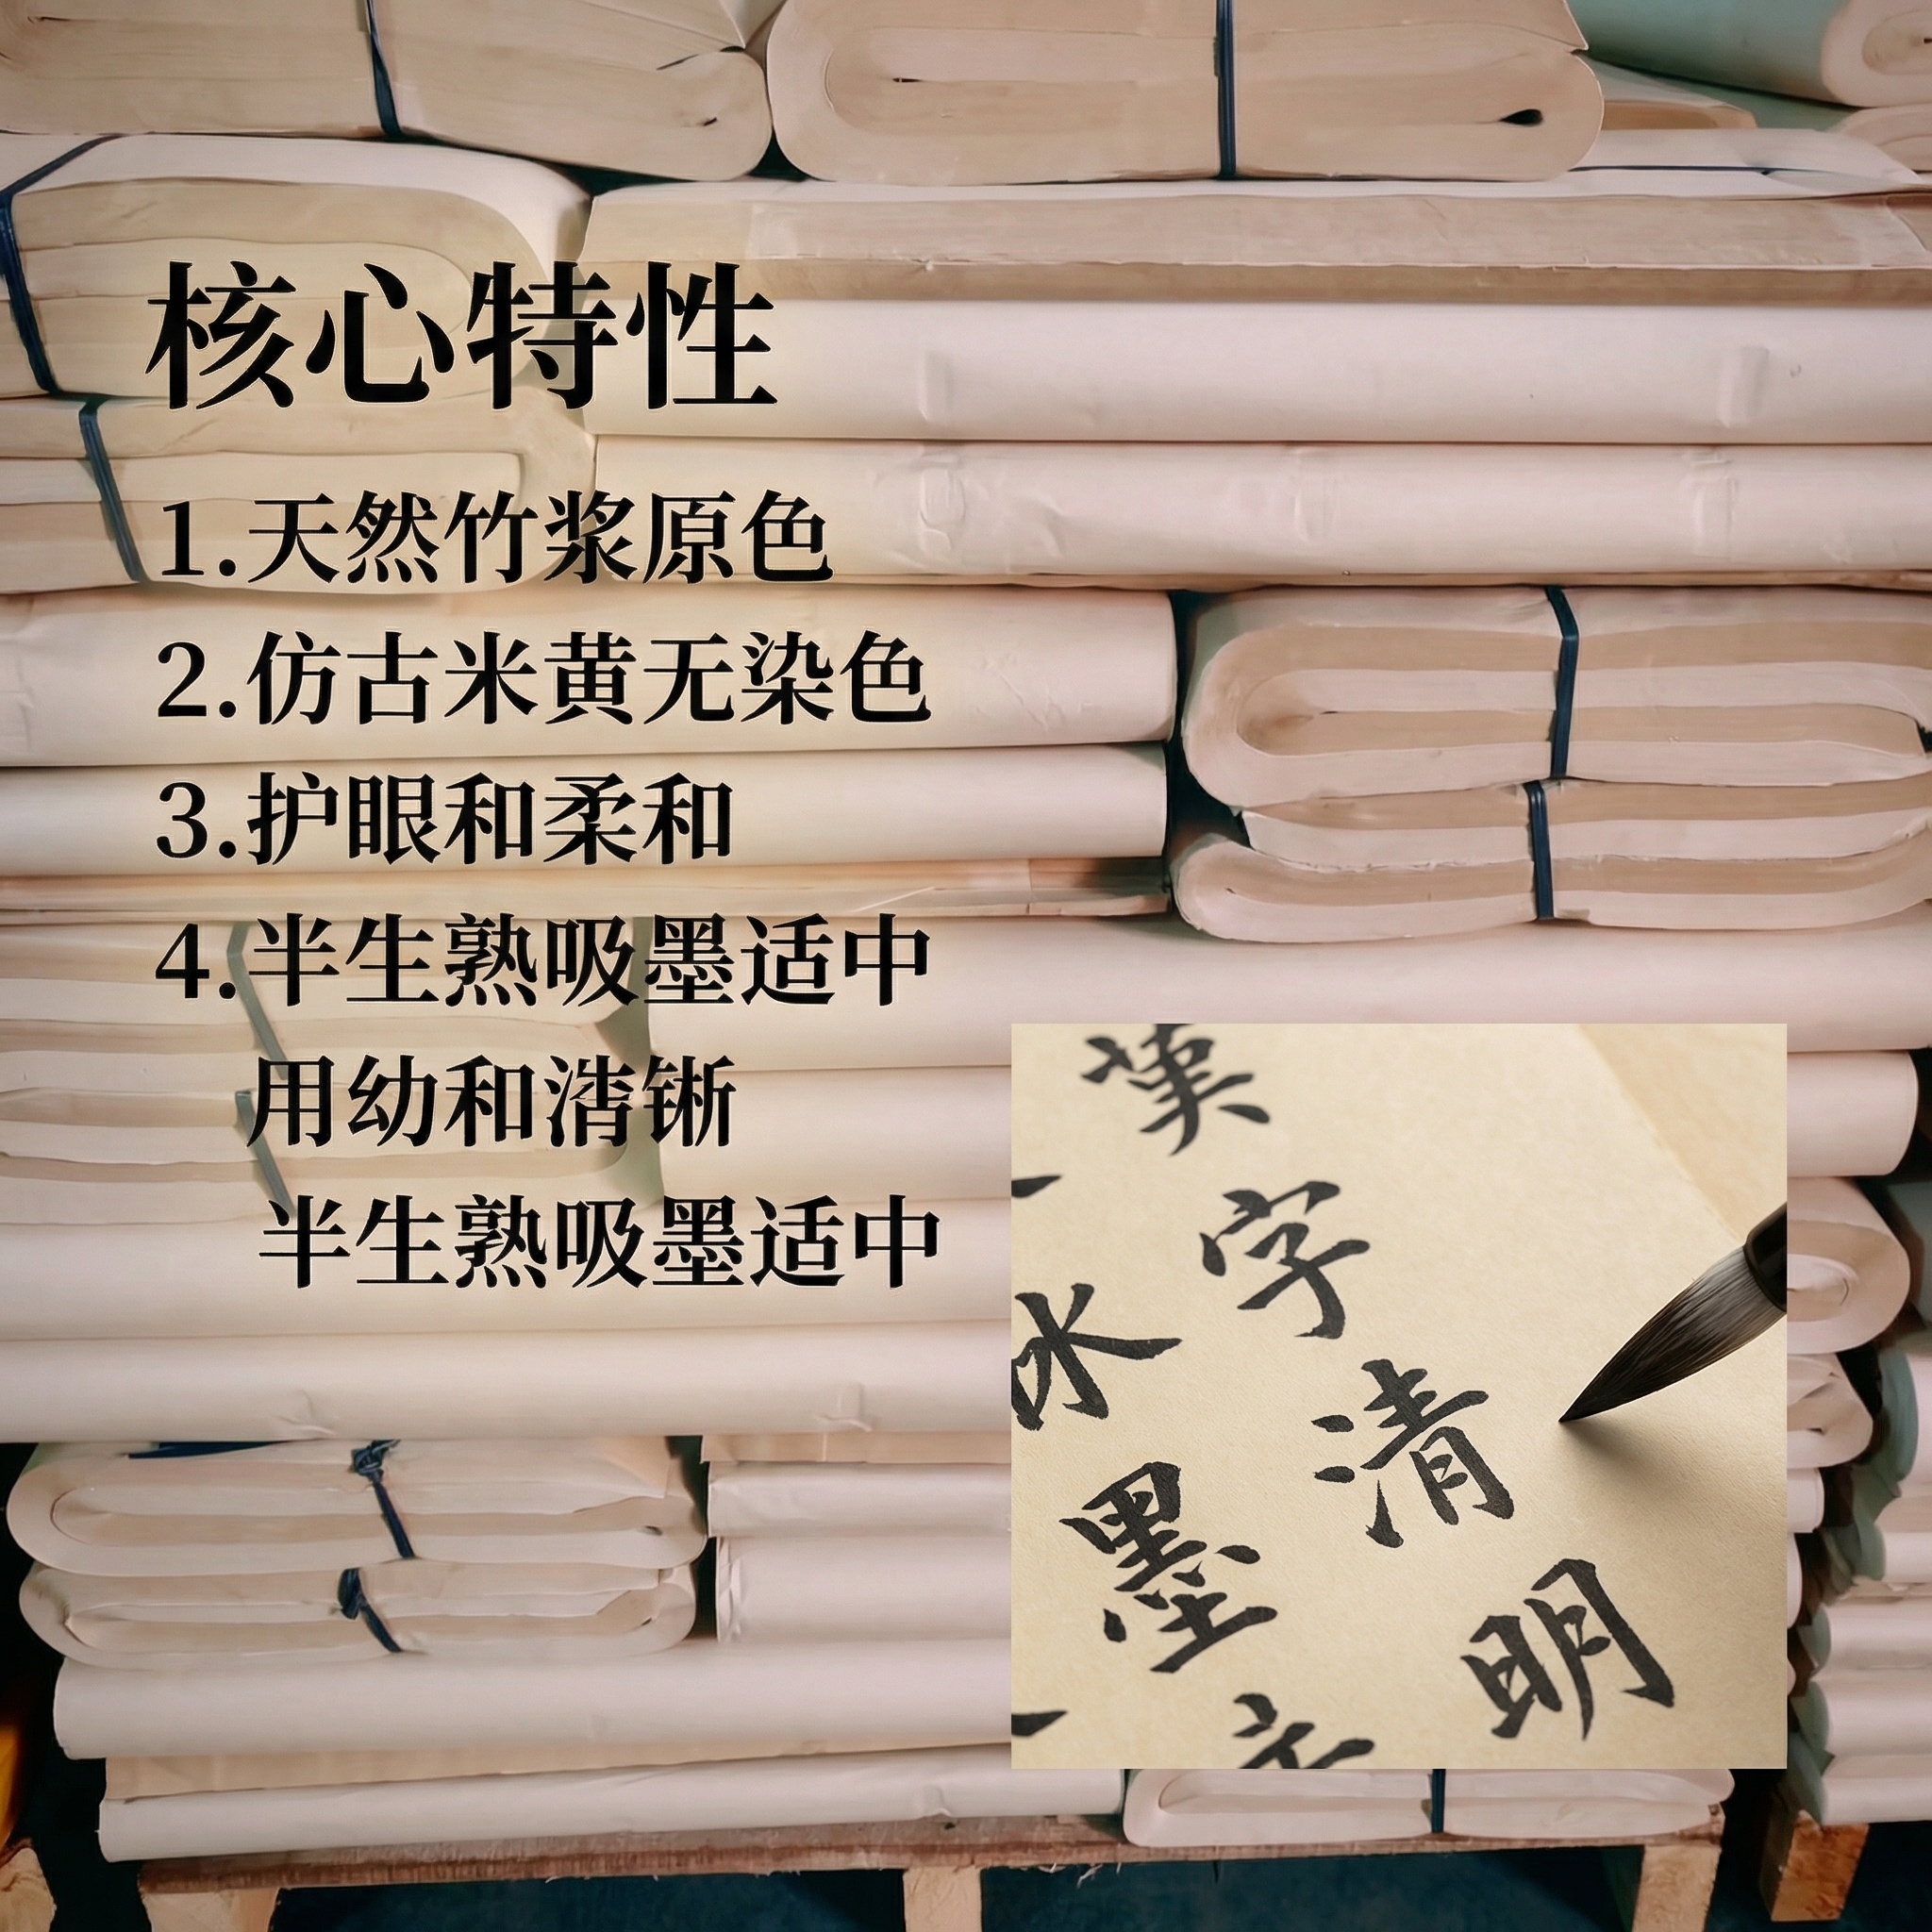 核心特性
1.天然竹浆原色
2.仿古米黄无染色
3.护眼和柔和
4.半生熟吸墨适中
用幼和清晰
半生熟吸墨适中
漢
字
水
清
墨
明